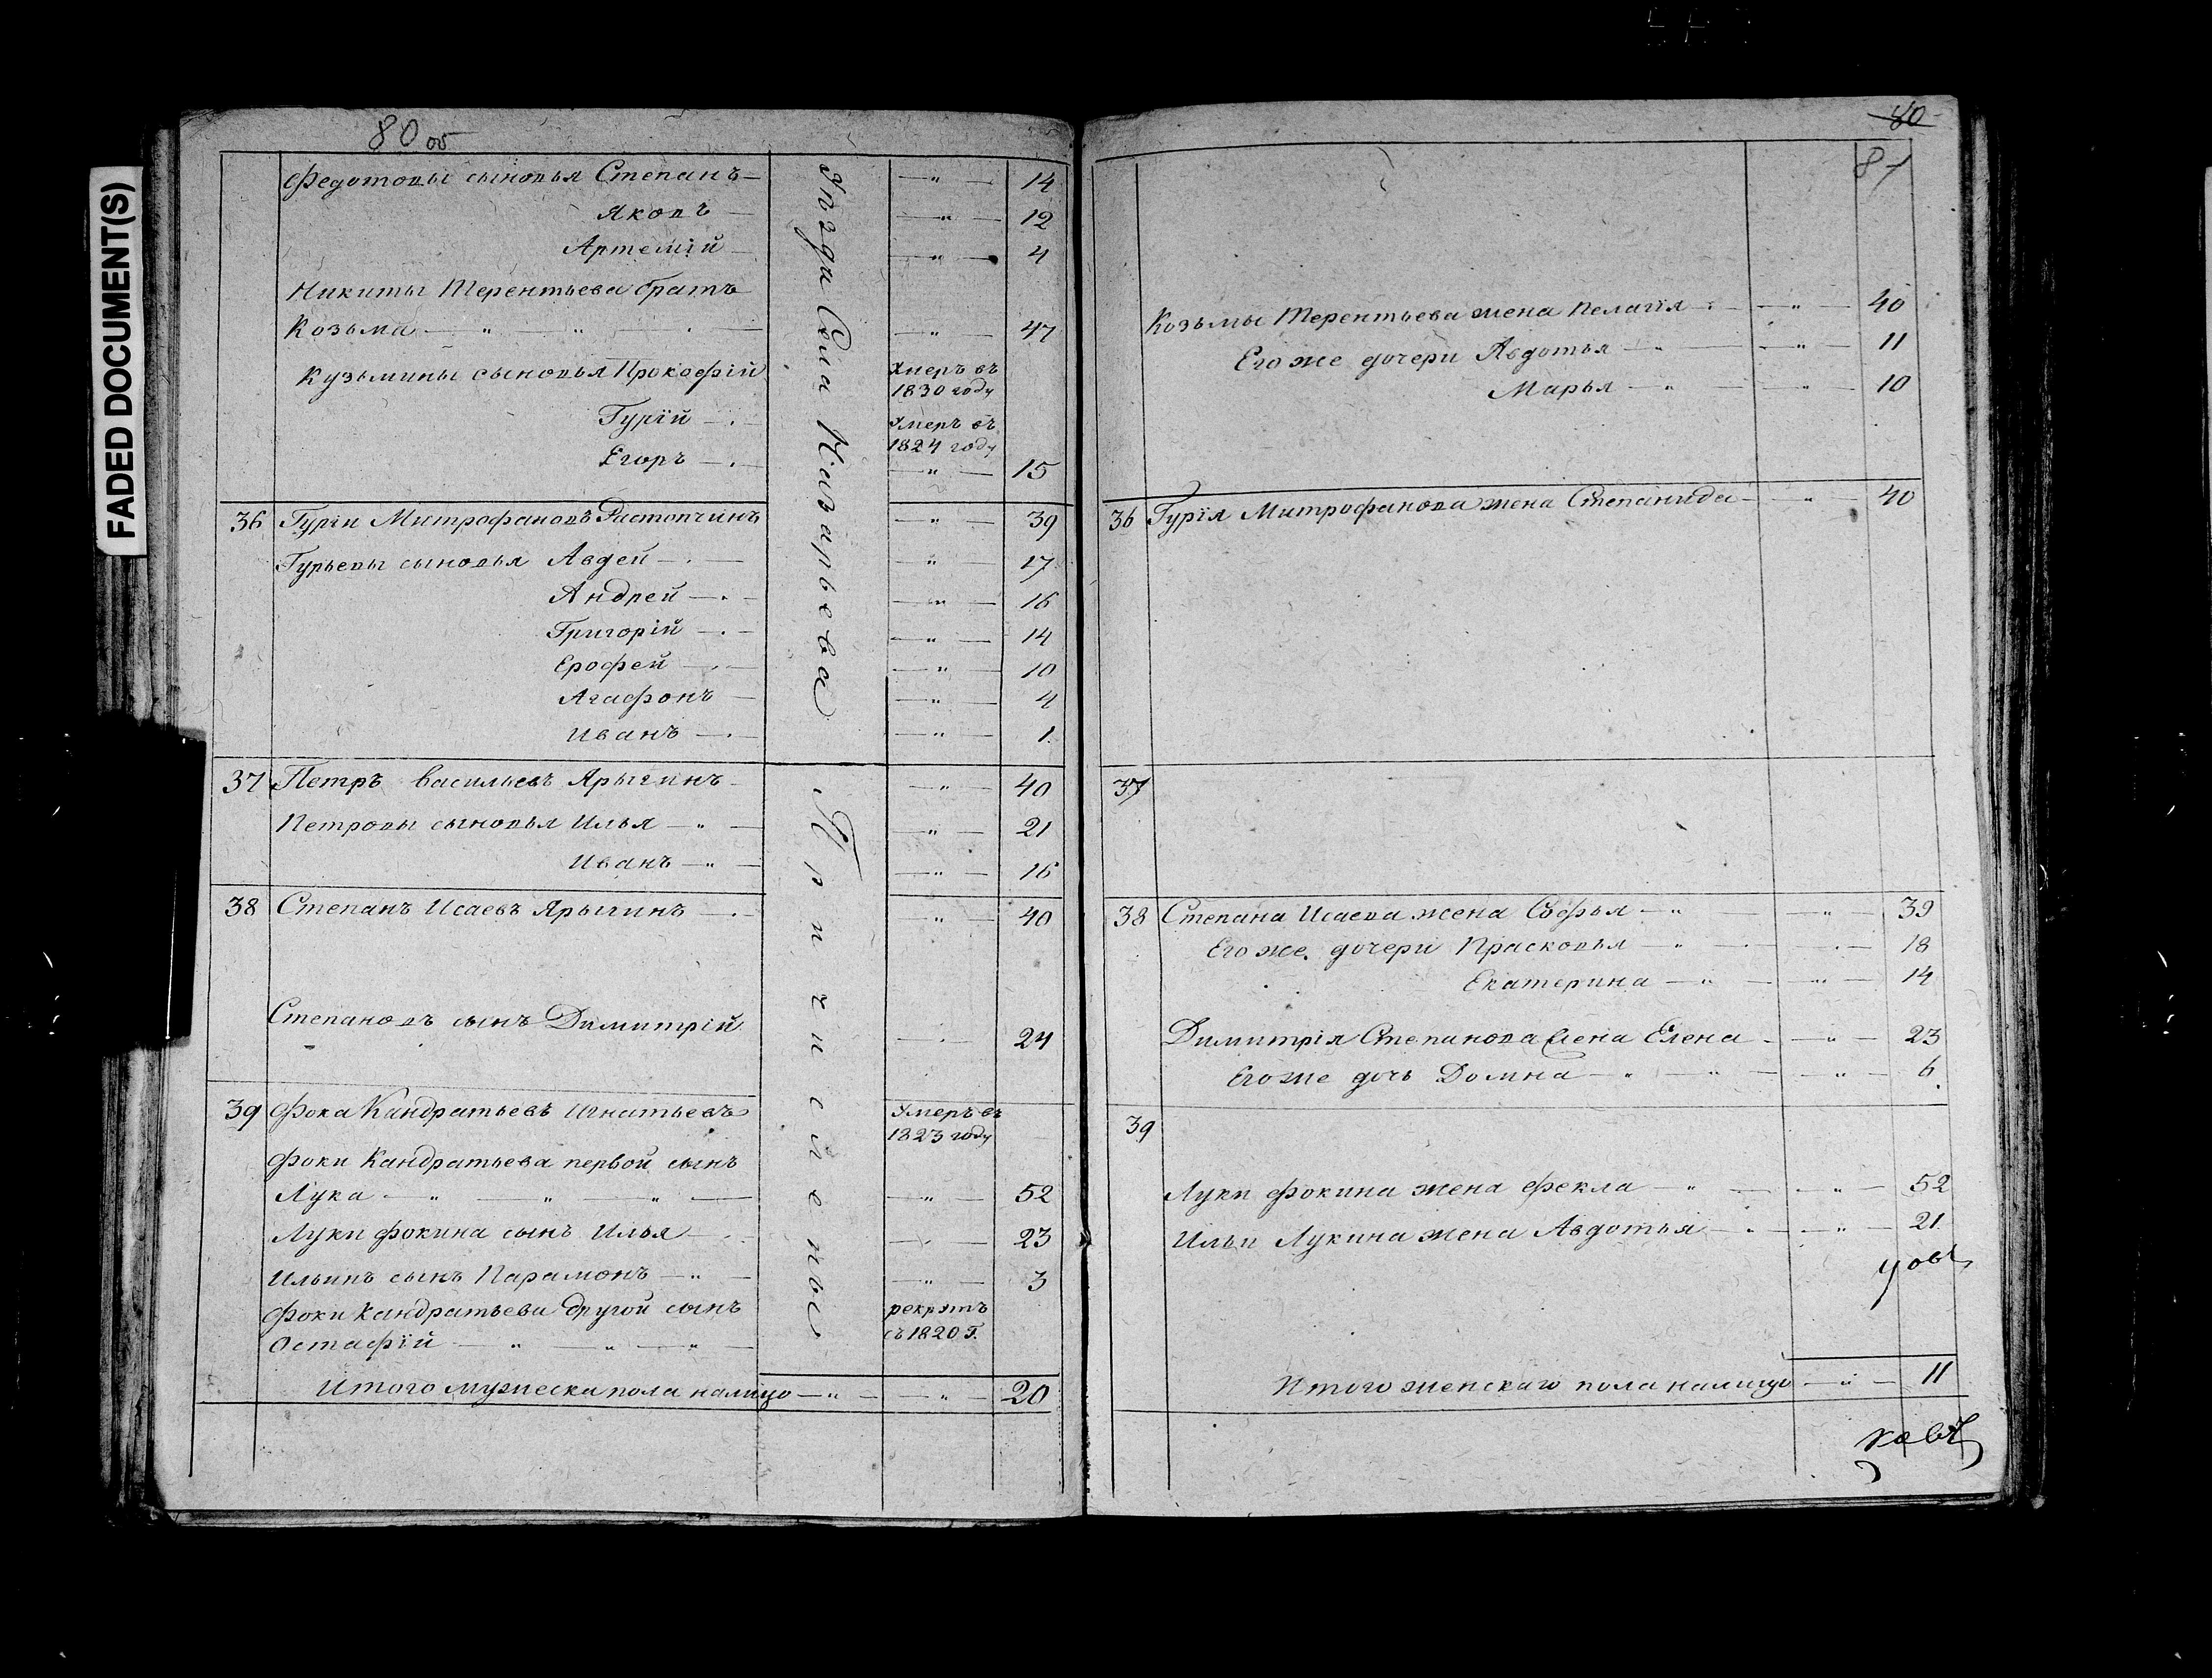 FADED DOCUMENT(S)
80 об
Федотовы сыновья Степанъ — " — 14
Яковъ — " — 12
Артемій — " — 4
Никиты Терентьева братъ
Козьма — " — " — " — 47
Кузьмины сыновья Прокофій Умеръ въ
1830 году
Гурій — Умеръ въ
1824 году
Егоръ — " — 15
36 Гурій Митрофановъ Растопчинъ — " — 39
Гурьевы сыновья Авдей — " — 17
Андрей — " — 16
Григорій — " — 14
Ерофей — " — 10
Агафонъ — " — 4
Иванъ — " — 1
37 Петръ Васильевъ Ярыгинъ — " — 40
Петровы сыновья Илья — " — " — 21
Иванъ — " — " — 16
38 Степанъ Исаевъ Ярыгинъ — " — 40
Степановъ сынъ Димитрій — 24
39 Фока Кандратьевъ Игнатьевъ Умеръ въ
1823 году
Фоки Кандратьева первой сынъ
Лука — " — " — " — " — 52
Луки Фокина сынъ Илья — 23
Ильинъ сынъ Парамонъ — " — " — 3
Фоки Кандратьева другой сынъ рекрутъ
съ 1820 г.
Остафій — " — " — "
Итого мужеска пола налицо — " — " — 20
уезда Села Назарьева
Причислены
80
81
Козьмы Терентьева жена Пелагія — " — 40
Его же дочери Авдотья — " — " — 11
Марья — " — " — 10
36 Гурія Митрофанова жена Степанида — " — 40
37
38 Степана Исаева жена Софья — " — " — 39
Его же дочери Прасковья — " — 18
Екатерина — " — " — 14
Димитрія Степанова жена Елена — " — 23
Его же дочь Домна — " — " — " — 6
39
Луки Фокина жена Фекла — " — " — 52
Ильи Лукина жена Авдотья — " — " — 21
Итого женскаго пола налицо — " — 11